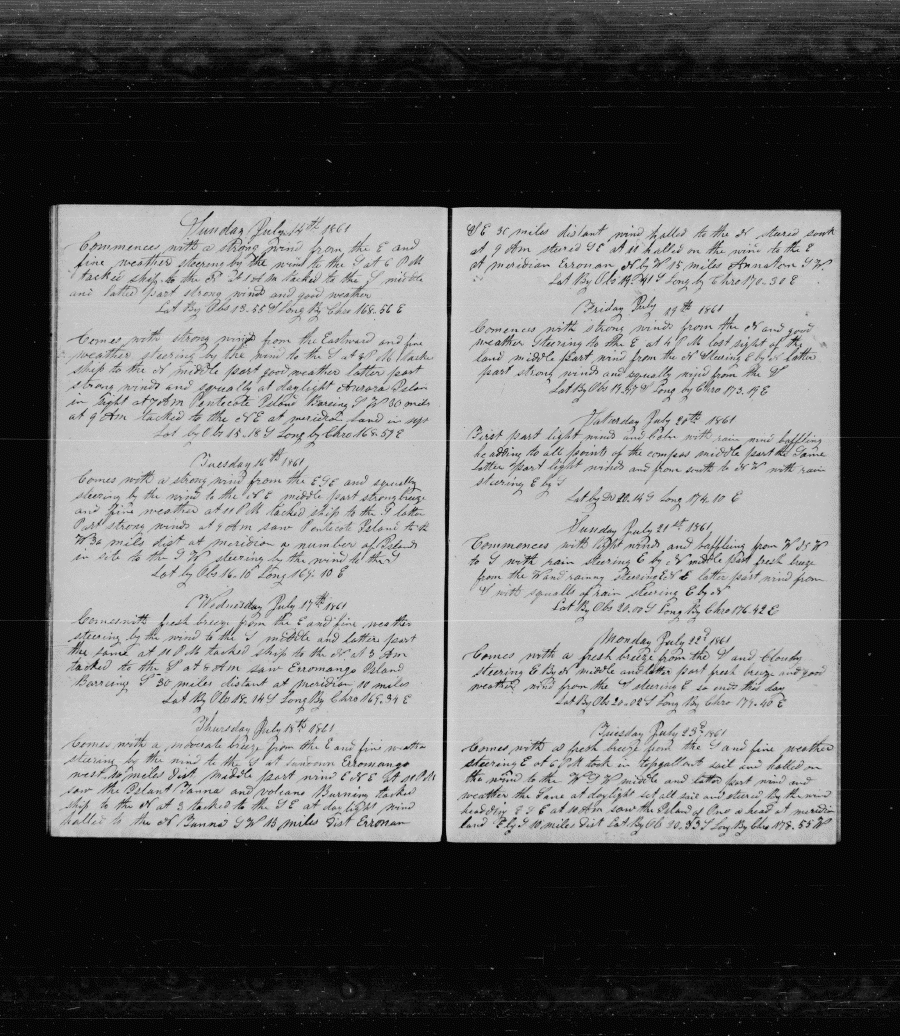 Sunday July 14th 1861
Commences with a strong wind from the E and
fine weather steering by the wind to the S at 6 PM
tacked ship to the N at 1 AM tacked to the S middle
and latted part strong winds and good weather
Lat By Obs 13-55 S Long By Chro 168-56 E
Comes with strong wind from the Eastward and fine
weather steering by the wind to the S at 8 PM tacke
ship to the N middle part good weather latter part
strong winds and squally at daylight Aurora Island
in sight at 7 AM Pentecote Island Barsing S W 30 miles
at 9 Am tacked to the N E at meridian land in sight
Lat by Obs 15-18 S Long by Chro 168-57 E
Tuesday 16th 1861
Comes with a strong wind from the E S E and squally
steering by the wind to the N E middle part strong breeze
and fine weather at 11 PM tacked ship to the S latter
Part strong winds at 9 Am saw Pentecote Island to the
W 30 miles dist at meridian a number of Islands
in site to the S W steering by the wind to the S
Lat by Obs 16-10 Long 169-10 E
Wednesday July 17th 1861
Comes with fresh breeze from the E and fine weather
steering by the wind to the S middle and latter part
the same at 11 PM tacked ship to the N at 3 Am
tacked to the S at 8 Am saw Erromango Island
Barreing S 30 miles distant at meridian 10 miles
Lat By Obs 18-14 S Long By Chro 169-34 E
Thursday July 18th 1861
Comes with a moderate breeze from the E and fine weather
steering by the wind to the S at sundown Erromango
west 10 miles Dist middle part wind E N E at 11 PM
saw the Island Tanna and volcano Burning tacked
ship to the N at 3 tacked to the S E at daylight wind
halled to the N Tanna S W 15 miles dist Erronan
S E 30 miles distant wind halled to the N stured south
at 9 Am stered S E at 11 halled on the wind to the E
at meridian Erronan N by W 15 miles Annatom S W
Lat By Obs 19-41 S Long by Chro 170-30 E
Friday July 19th 1861
Comences with strong winds from the N and good
weather Steering to the E at 4 PM lost sight of the
land middle part wind from the N Steering E by S latter
part strong winds and squally wind from the N
Lat By Obs 19-57 S Long by Chro 173-19 E
Saturday July 20th 1861
First part light winds and Calm with rain wind baffling
heading to all points of the compass middle part the Same
latter part light winds and from south to N W with rain
steering E by S
Lat by D 20-14 S Long 174-10 E
Sunday July 21st 1861
Commences with light winds and baffling from W S W
to S with rain steering E by N middle part fresh breeze
from the W and rainny steering N E latter part wind from
S with squalls of rain steering E by N
Lat By Obs 20-00 S Long By Chro 176-42 E
Monday July 22d 1861
Comes with a fresh breeze from the S and Cloudy
Steering E By N middle and latter part fresh breeze and good
weather wind from the S steering E so ends this day
Lat By Obs 20-02 S Long By Chro 179-40 E
Tuesday July 23d 1861
Comes with a fresh breeze from the S and fine weather
steering E at 6 PM took in topgallant sail and halled on
the wind to the W S W middle and latter part wind and
weather the same at daylight set all sail and steered by the wind
heading E S E at 10 Am saw the Island of Ono a head at meridian
land E by S 10 miles dist Lat By Ob 20-33 S Long By Chro 178-55 W